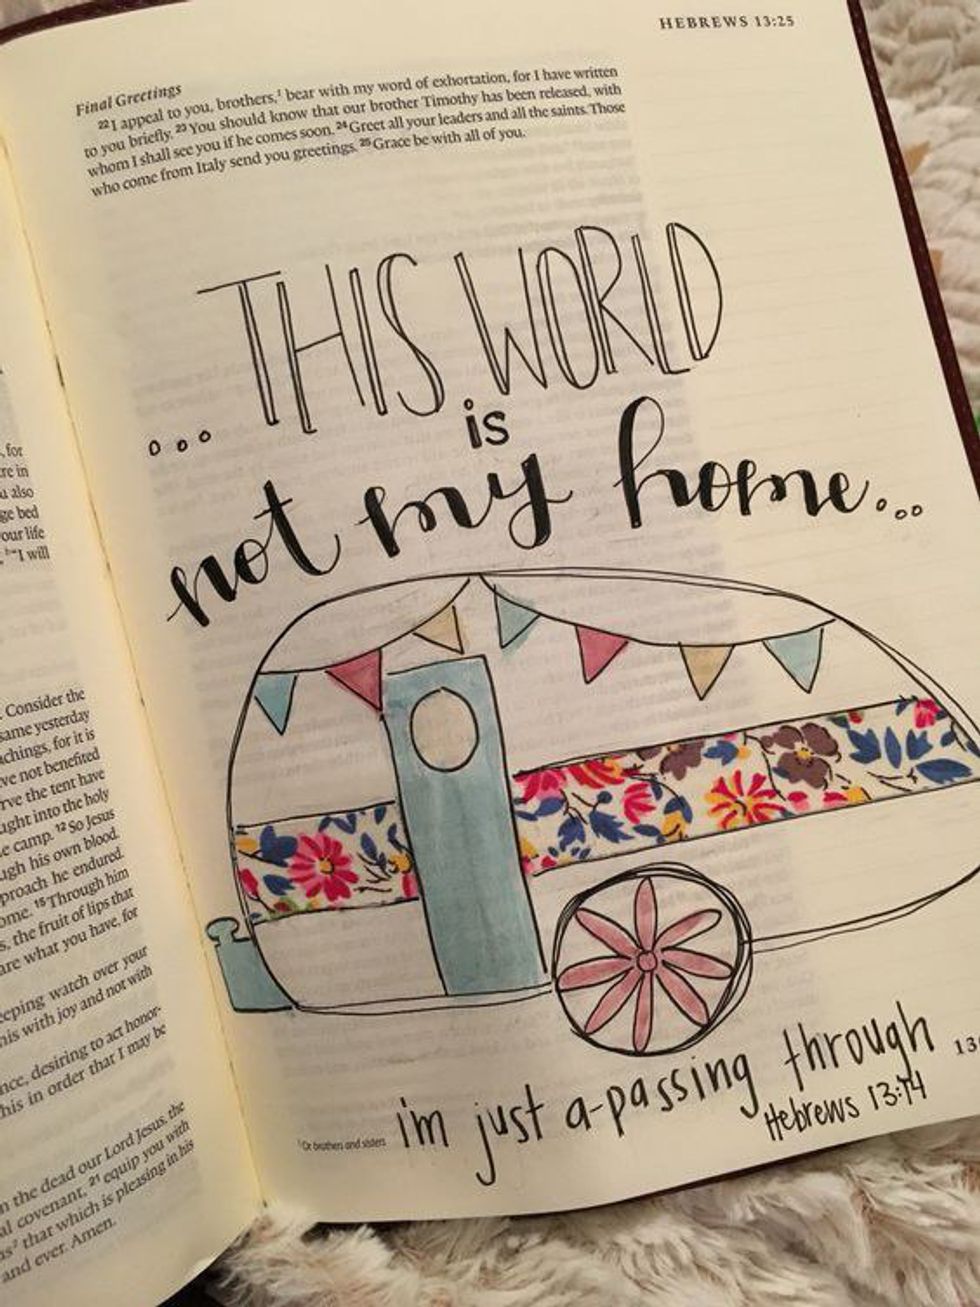 , for
re in
u also
ge bed
our life
"I will
. Consider the
same yesterday
achings, for it is
ve not benefited
rve the tent have
ught into the holy
e camp. 12 So Jesus
ugh his own blood.
proach he endured.
ome. 15 Through him
s, the fruit of lips that
are what you have, for
eeping watch over your
his with joy and not with
nce, desiring to act honor-
his in order that I may be
n the dead our Lord Jesus, the
al covenant, 21 equip you with
s2 that which is pleasing in his
and ever. Amen.
HEBREWS 13:25
Final Greetings
22 I appeal to you, brothers,1 bear with my word of exhortation, for I have written
to you briefly. 23 You should know that our brother Timothy has been released, with
whom I shall see you if he comes soon. 24 Greet all your leaders and all the saints. Those
who come from Italy send you greetings. 25 Grace be with all of you.
...THIS WORLD
is
not my home...
i'm just a-passing through
Hebrews 13:14
1 Or brothers and sisters